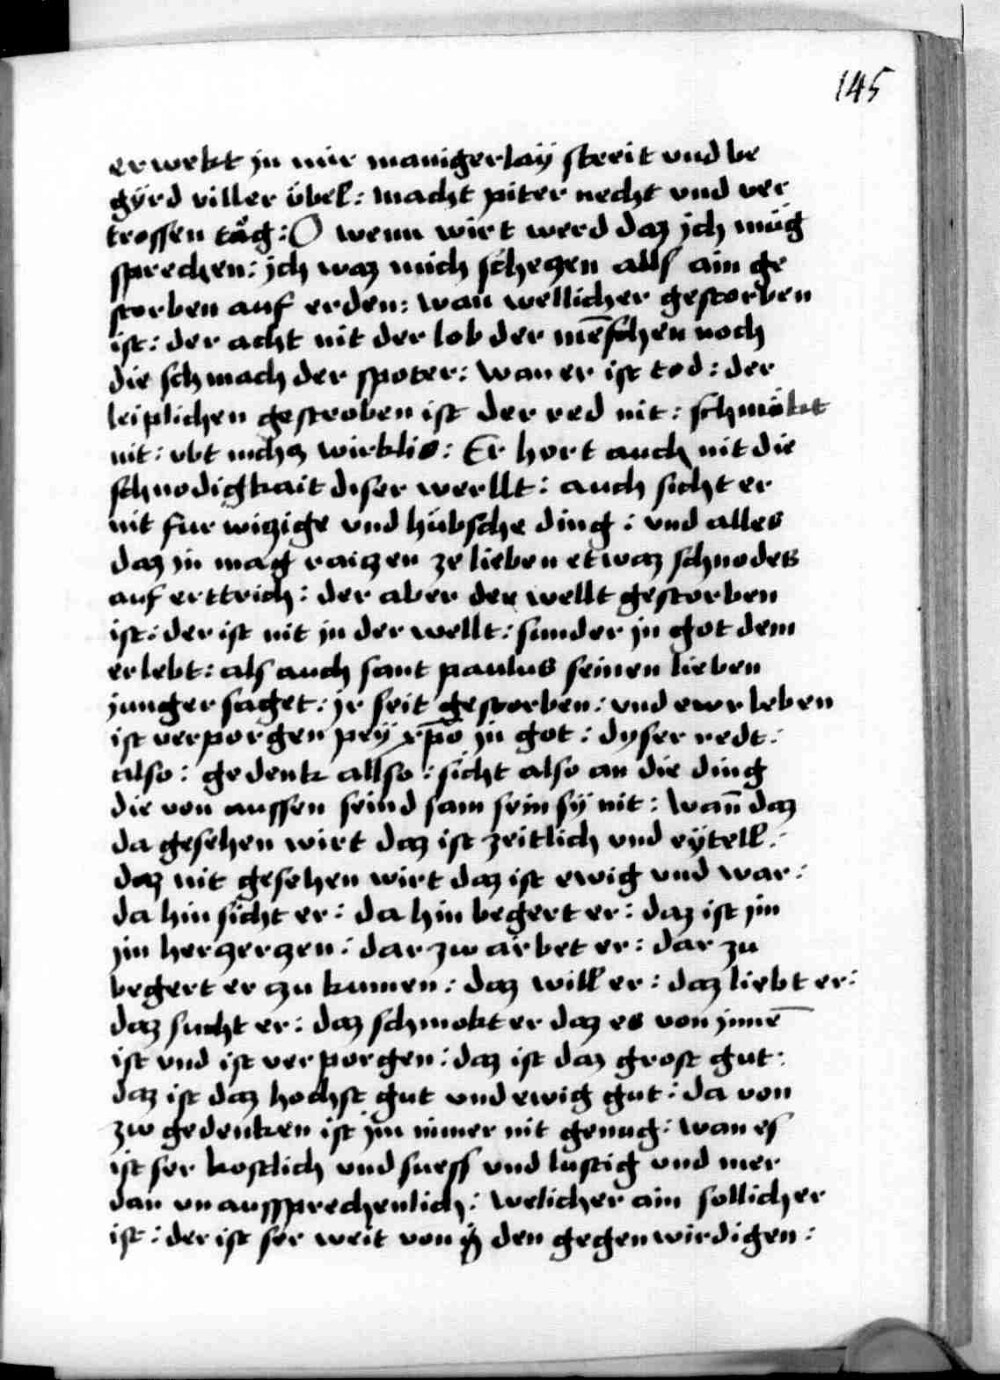 145
erwekt jn mir manigerlaÿ streit vnd be
gÿrd viller übel: macht piter necht vnd ver
trossen täg: O wenn wirt werd daz jch müg
sprechen: jch waz mich schegen alls ain ge
storben auf erden: wan wellicher gestorben
ist: der acht nit der lob der mēschen noch
die schmach der spoter: wan er ist tod: der
leiplichen gestroben ist der red nit: schmökt
nit: vbt nichs wirklis: Er hort auch nit die
schnodigkait diser werllt: auch sicht er
nit fur wizige vnd hübsche ding: vnd alles
daz jn mag raiczen ze lieben etwaz schnodes
auf erttrich: der aber der wellt gestorben
ist: der ist nit jn der wellt: sunder jn got dem
er lebt: als auch sant paulus seinen lieben
junger saget: jr seit gestorben: vnd ewr leben
ist verporgen peÿ xp̄o jn got: dyser redt:
also: gedenk allso: sicht also an die ding
die von aussen seind sam sein sÿ nit: wan̄ daz
da gesehen wirt daz ist zeitlich vnd eÿtell:
daz nit gesehen wirt daz ist ewig vnd war:
da hin sicht er: da hin begert er: daz ist jm
jm herczerczen: dar zw arbet er: dar zu
begert er czu kumen: daz will er: daz liebt er:
daz sucht er: daz schmokt er daz es von jnnē
ist vnd ist verporgen: daz ist daz grost gut:
daz ist daz hochst gut vnd ewig gut: da von
zw gedenken ist jm nimer nit genug: wan es
ist ser kostlich vnd suess vnd lustig vnd mer
dan vn aussprechenlich: welicher ain sollicher
ist: der ist ser weit von den gegenwirdigen: